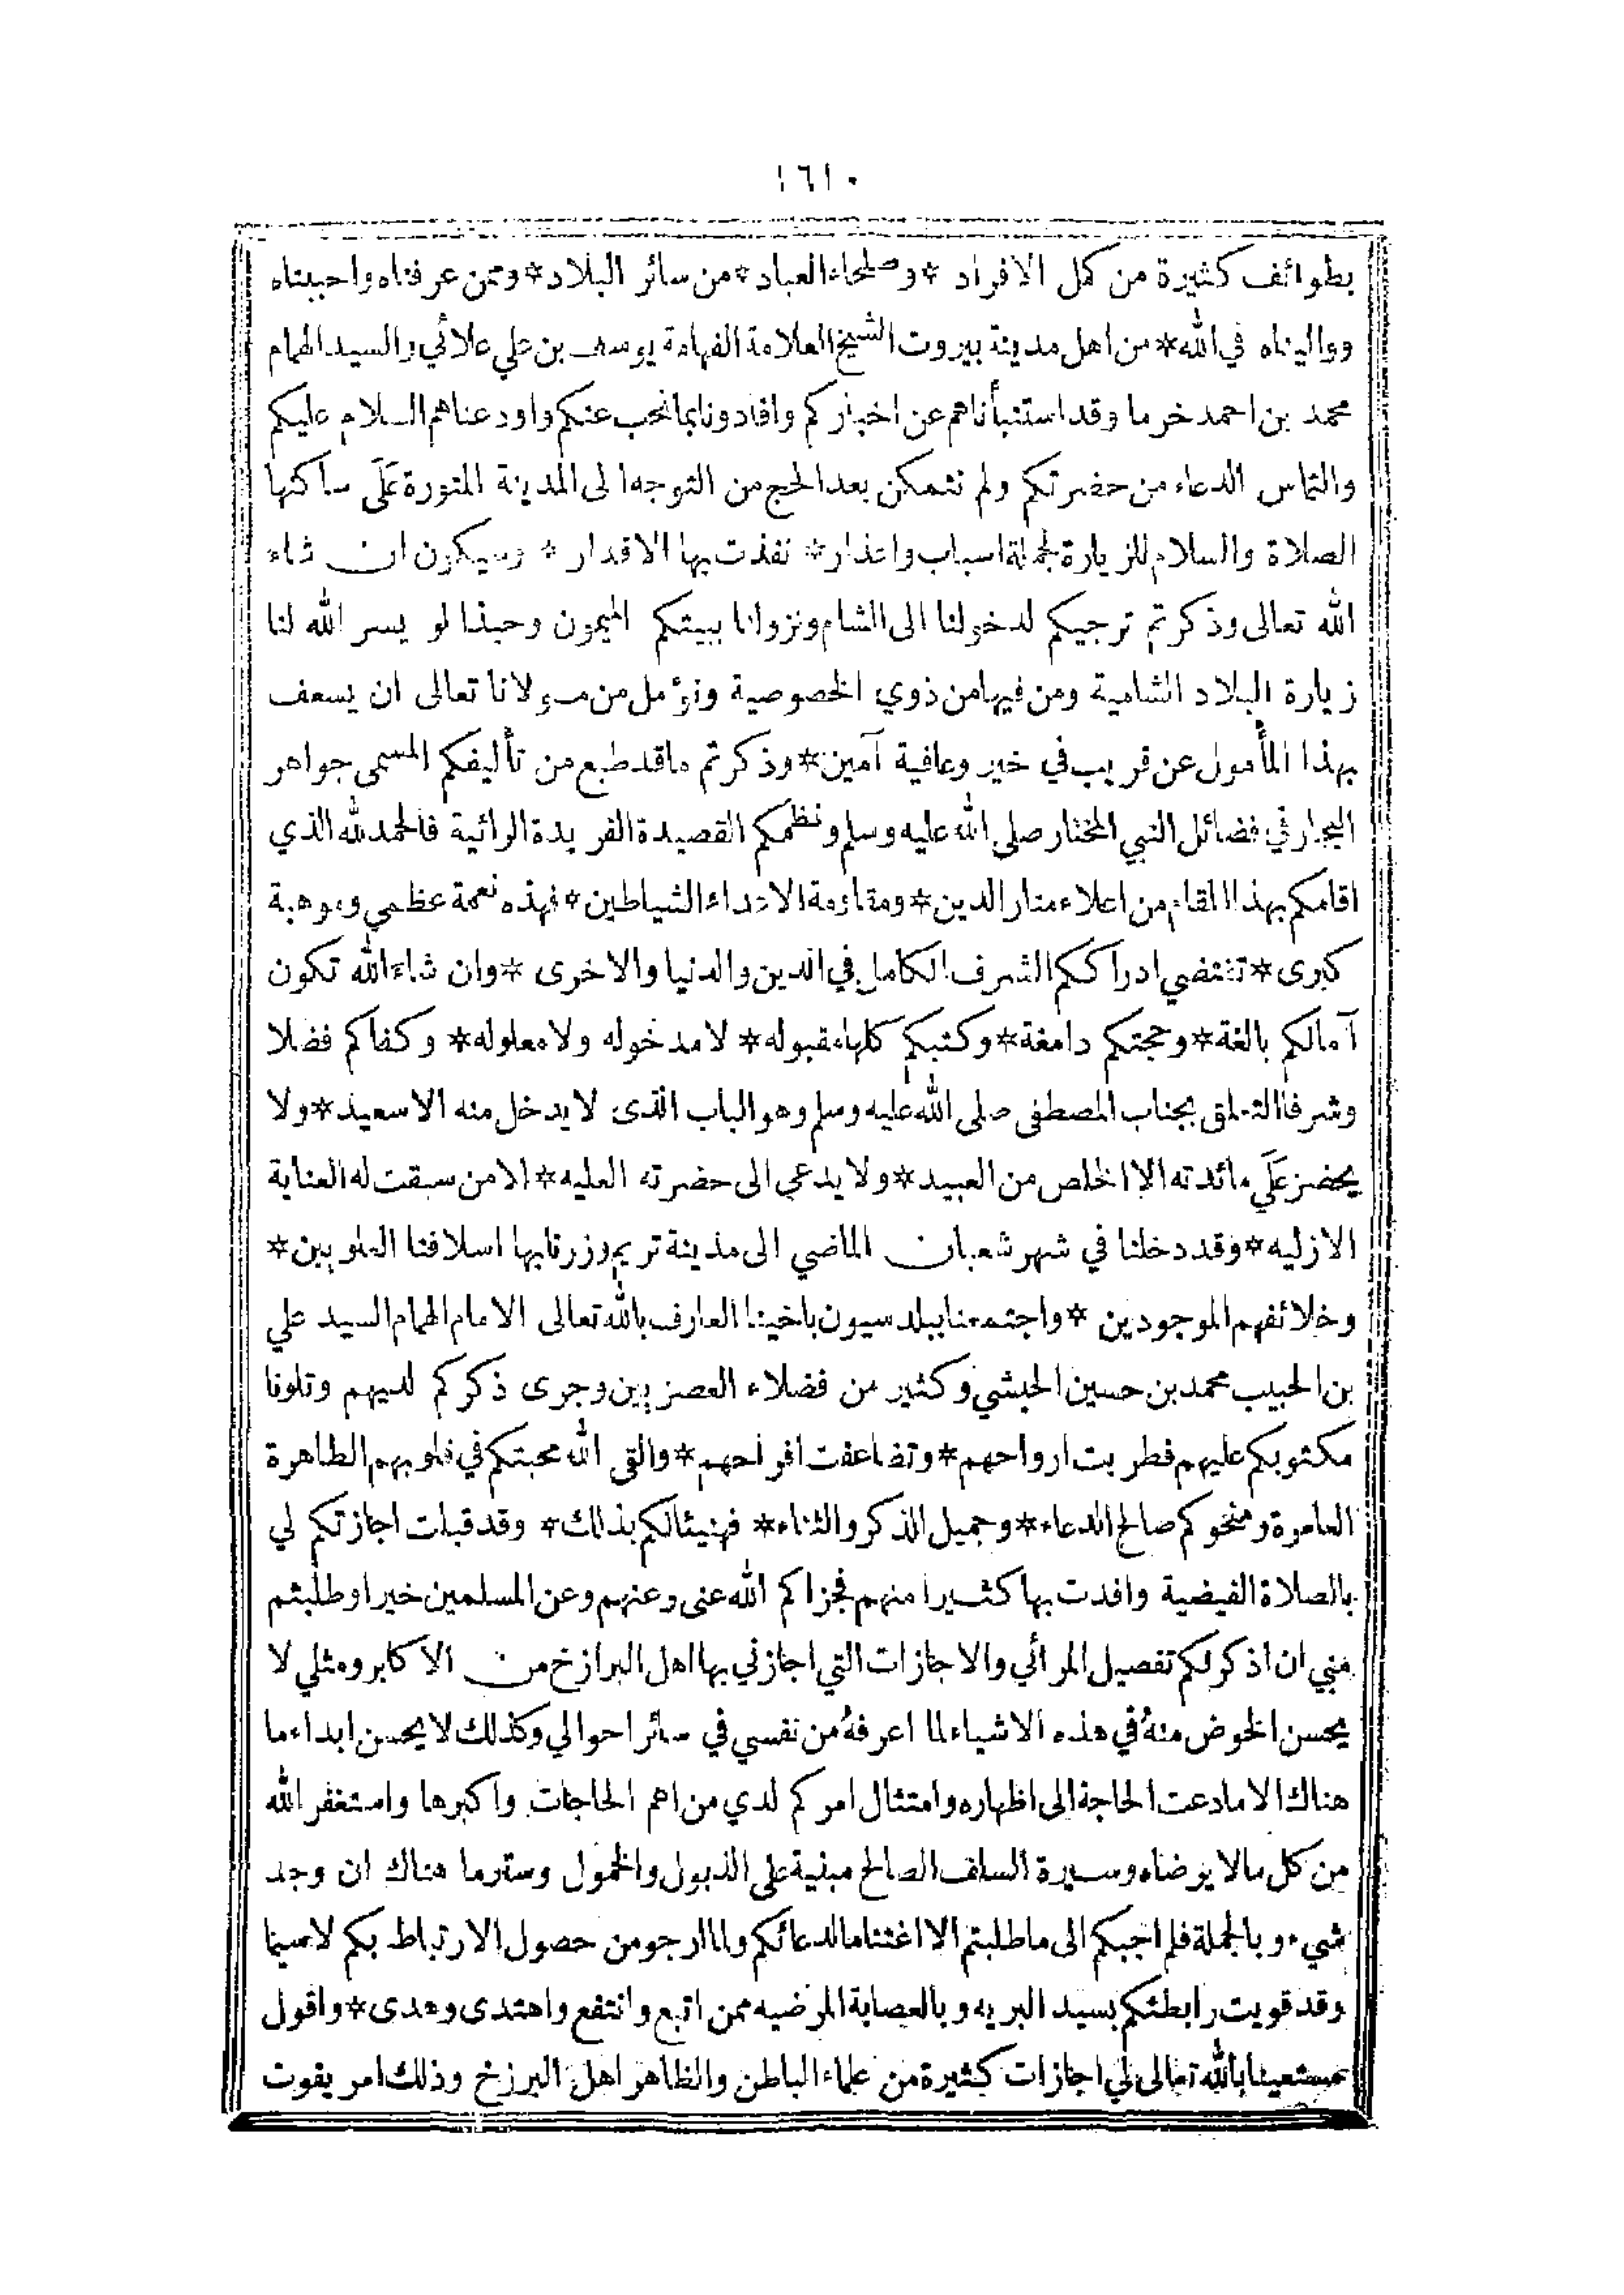 ١٦١٠
بطوائف كثيرة من كمل الافراد * وصلحاء العباد * من سائر البلاد * وممن عرفناه واحببناه
وواليناه في الله * من اهل مدينة بيروت الشيخ العلامة الفهامة يوسف بن علي علائي والسيد الهمام
محمد بن احمد خرما وقد استنبأناهم عن اخباركم وافادونا بما نحب عنكم واودعناهم السلام عليكم
والتماس الدعاء من حضرتكم ولم نتمكن بعد الحج من التوجه الى المدينة المنورة عَلَى ساكنها
الصلاة والسلام للزيارة لجملة اسباب واعذار * نفذت بها الاقدار * وسيكون ان شاء
الله تعالى وذكرتم ترجيكم لدخولنا الى الشام ونزولنا ببيتكم الميمون وحبذا لو يسر الله لنا
زيارة البلاد الشامية ومن فيها من ذوي الخصوصية ونؤمل من مولانا تعالى ان يسعف
بهذا المأمول عن قريب في خير وعافية آمين * وذكرتم ما قد طبع من تأليفكم المسمى جواهر
البحار في فضائل النبي المختار صلى الله عليه وسلم ونظمكم القصيدة الفريدة الرائية فالحمد لله الذي
اقامكم بهذا المقام من اعلاء منار الدين * ومقاومة الاعداء الشياطين * فهذه نعمة عظمى وموهبة
كبرى * تقتضي ادراككم الشرف الكامل في الدين والدنيا والاخرى * وان شاء الله تكون
آمالكم بالغة * وحجتكم دامغة * وكتبكم كلها مقبوله * لا مدخوله ولا معلوله * وكفاكم فضلا
وشرفا التعلق بجناب المصطفى صلى الله عليه وسلم وهو الباب الذى لا يدخل منه الا سعيد * ولا
يحضر عَلَى مائدته الا الخلص من العبيد * ولا يدعى الى حضرته العليه * الا من سبقت له العناية
الازليه * وقد دخلنا في شهر شعبان الماضي الى مدينة تريم وزرنا بها اسلافنا العلويين *
وخلائفهم الموجودين * واجتمعنا ببلد سيون باخينا العارف بالله تعالى الامام الهمام السيد علي
بن الحبيب محمد بن حسين الحبشي وكثير من فضلاء العصريين وجرى ذكركم لديهم وتلونا
مكتوبكم عليهم فطربت ارواحهم * وتضاعفت افراحهم * والقى الله محبتكم في قلوبهم الطاهرة
العامرة ومنحوكم صالح الدعاء * وجميل الذكر والثناء * فهنيئا لكم بذلك * وقد قبلت اجازتكم لي
بالصلاة الفيضية وافدت بها كثيرا منهم فجزاكم الله عنى وعنهم وعن المسلمين خيرا وطلبتم
مني ان اذكر لكم تفصيل المرائي والاجازات التي اجازني بها اهل البرازخ من الاكابر ومثلي لا
يحسن الخوض منهُ في هذه الاشياء لما اعرفهُ من نفسي في سائر احوالي وكذلك لا يحسن ابداء ما
هناك الا ما دعت الحاجة الى اظهاره وامتثال امركم لدي من اهم الحاجات واكبرها واستغفر الله
من كل ما لا يرضاه وسيرة السلف الصالح مبنية على الذبول والخمول وستر ما هناك ان وجد
شيء وبالجملة فلم اجبكم الى ما طلبتم الا اغتناما لدعائكم ولما ارجو من حصول الارتباط بكم لا سيما
وقد قويت رابطتكم بسيد البريه وبالعصابة المرضيه ممن اتبع وانتفع واهتدى وهدى * واقول
مستعينا بالله تعالى لي اجازات كثيرة من علماء الباطن والظاهر اهل البرزخ وذلك امر يفوت